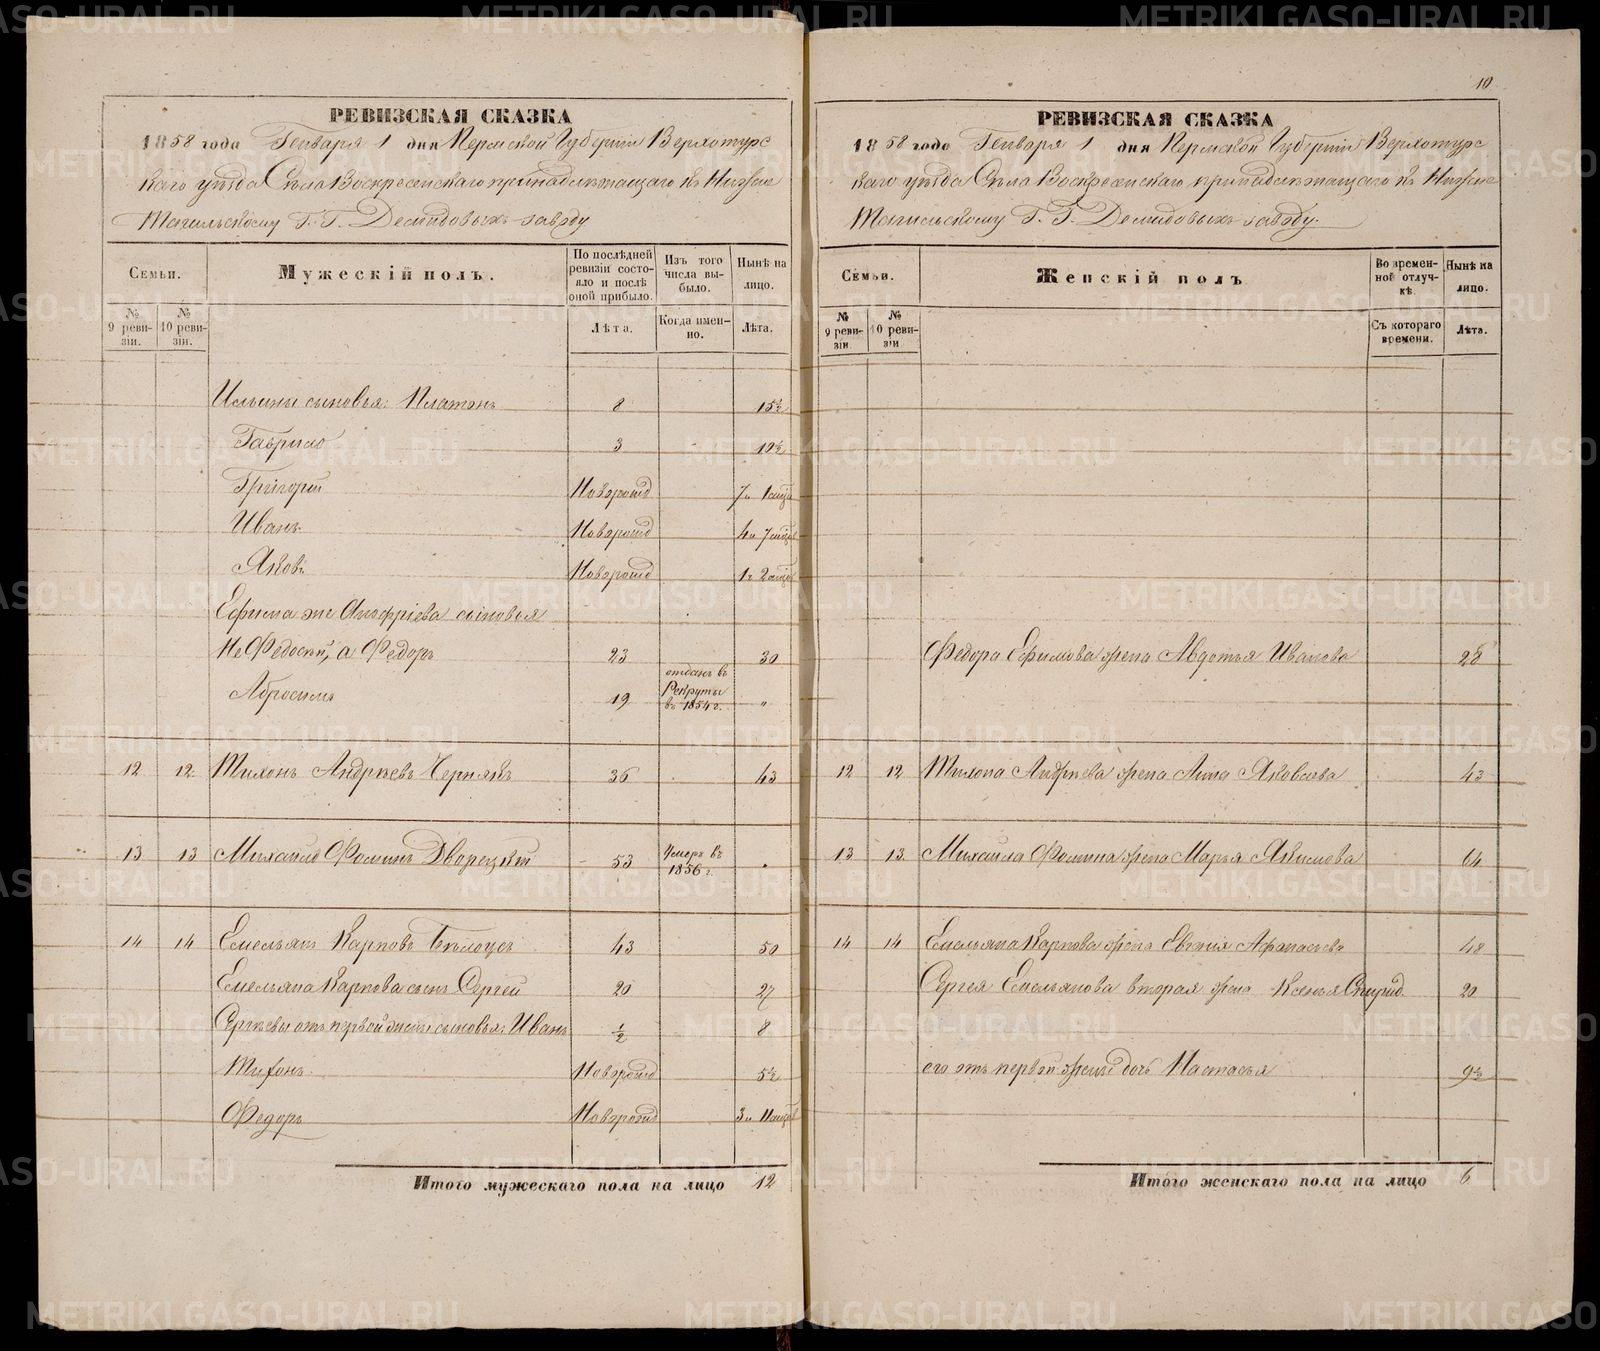 10
РЕВИЗСКАЯ СКАЗКА
1858 года Генваря 1 дня Пермской Губерніи Верхотурс
каго уѣзда Села Воскресенскаго принадлежащаго къ Нижне
Тагильскому Г. Г. Демидовыхъ заводу
Семьи.
Мужескій полъ.
По послѣдней ревизіи состояло и послѣ оной прибыло.
Изъ того числа выбыло.
Нынѣ на лицо.
№ 9 ревизіи.
№ 10 ревизіи.
Лѣта.
Когда именно.
Лѣта.
Ильины сыновья: Платонъ 8 15½
Гаврило 3 10½
Григорій Новорожд 7 и 1 мѣся
Иванъ Новорожд 4 и 7 мѣсяц
Яковъ Новорожд 1 и 2 мѣсяц
Ефима же Анофріева сыновья
Не Федосѣй, а Федоръ 23 30
Абросимъ 19 отданъ въ Рекруты въ 1854 г. "
12 12 Тихонъ Андреевъ Чернякъ 36 43
13 13 Михайло Фоминъ Дворецкій 53 Умеръ въ 1856 г.
14 14 Емельянъ Карповъ Бѣлоусъ 43 50
Емельяна Карпова сынъ Сергей 20 27
Сергѣевы отъ первой жены сыновья: Иванъ ½ 8
Тифонъ Новорожд 5½
Федоръ Новорожд 3 и 11 мѣсяцов
Итого мужескаго пола на лицо 12
РЕВИЗСКАЯ СКАЗКА
1858 года Генваря 1 дня Пермской Губерніи Верхотурс
каго уѣзда Села Воскресенскаго принадлежащаго къ Нижне
Тагильскому Г. Г. Демидовыхъ заводу.
Семьи.
Женскій полъ
Во временной отлучкѣ.
Нынѣ на лицо.
№ 9 ревизіи
№ 10 ревизіи
Съ котораго времени.
Лѣта.
Федора Ефимова жена Авдотья Иванова 28
12 12 Тихона Андреева жена Анна Яковлева 43
13 13 Михаила Фомина жена Марья Якимова 64
14 14 Емельяна Карпова жена Евгения Афанасьева 48
Сергея Емельянова вторая жена Ксенья Спирид. 20
его отъ первой жены дочь Настасья 9½
Итого женскаго пола на лицо 6
METRIKI.GASO-URAL.RU